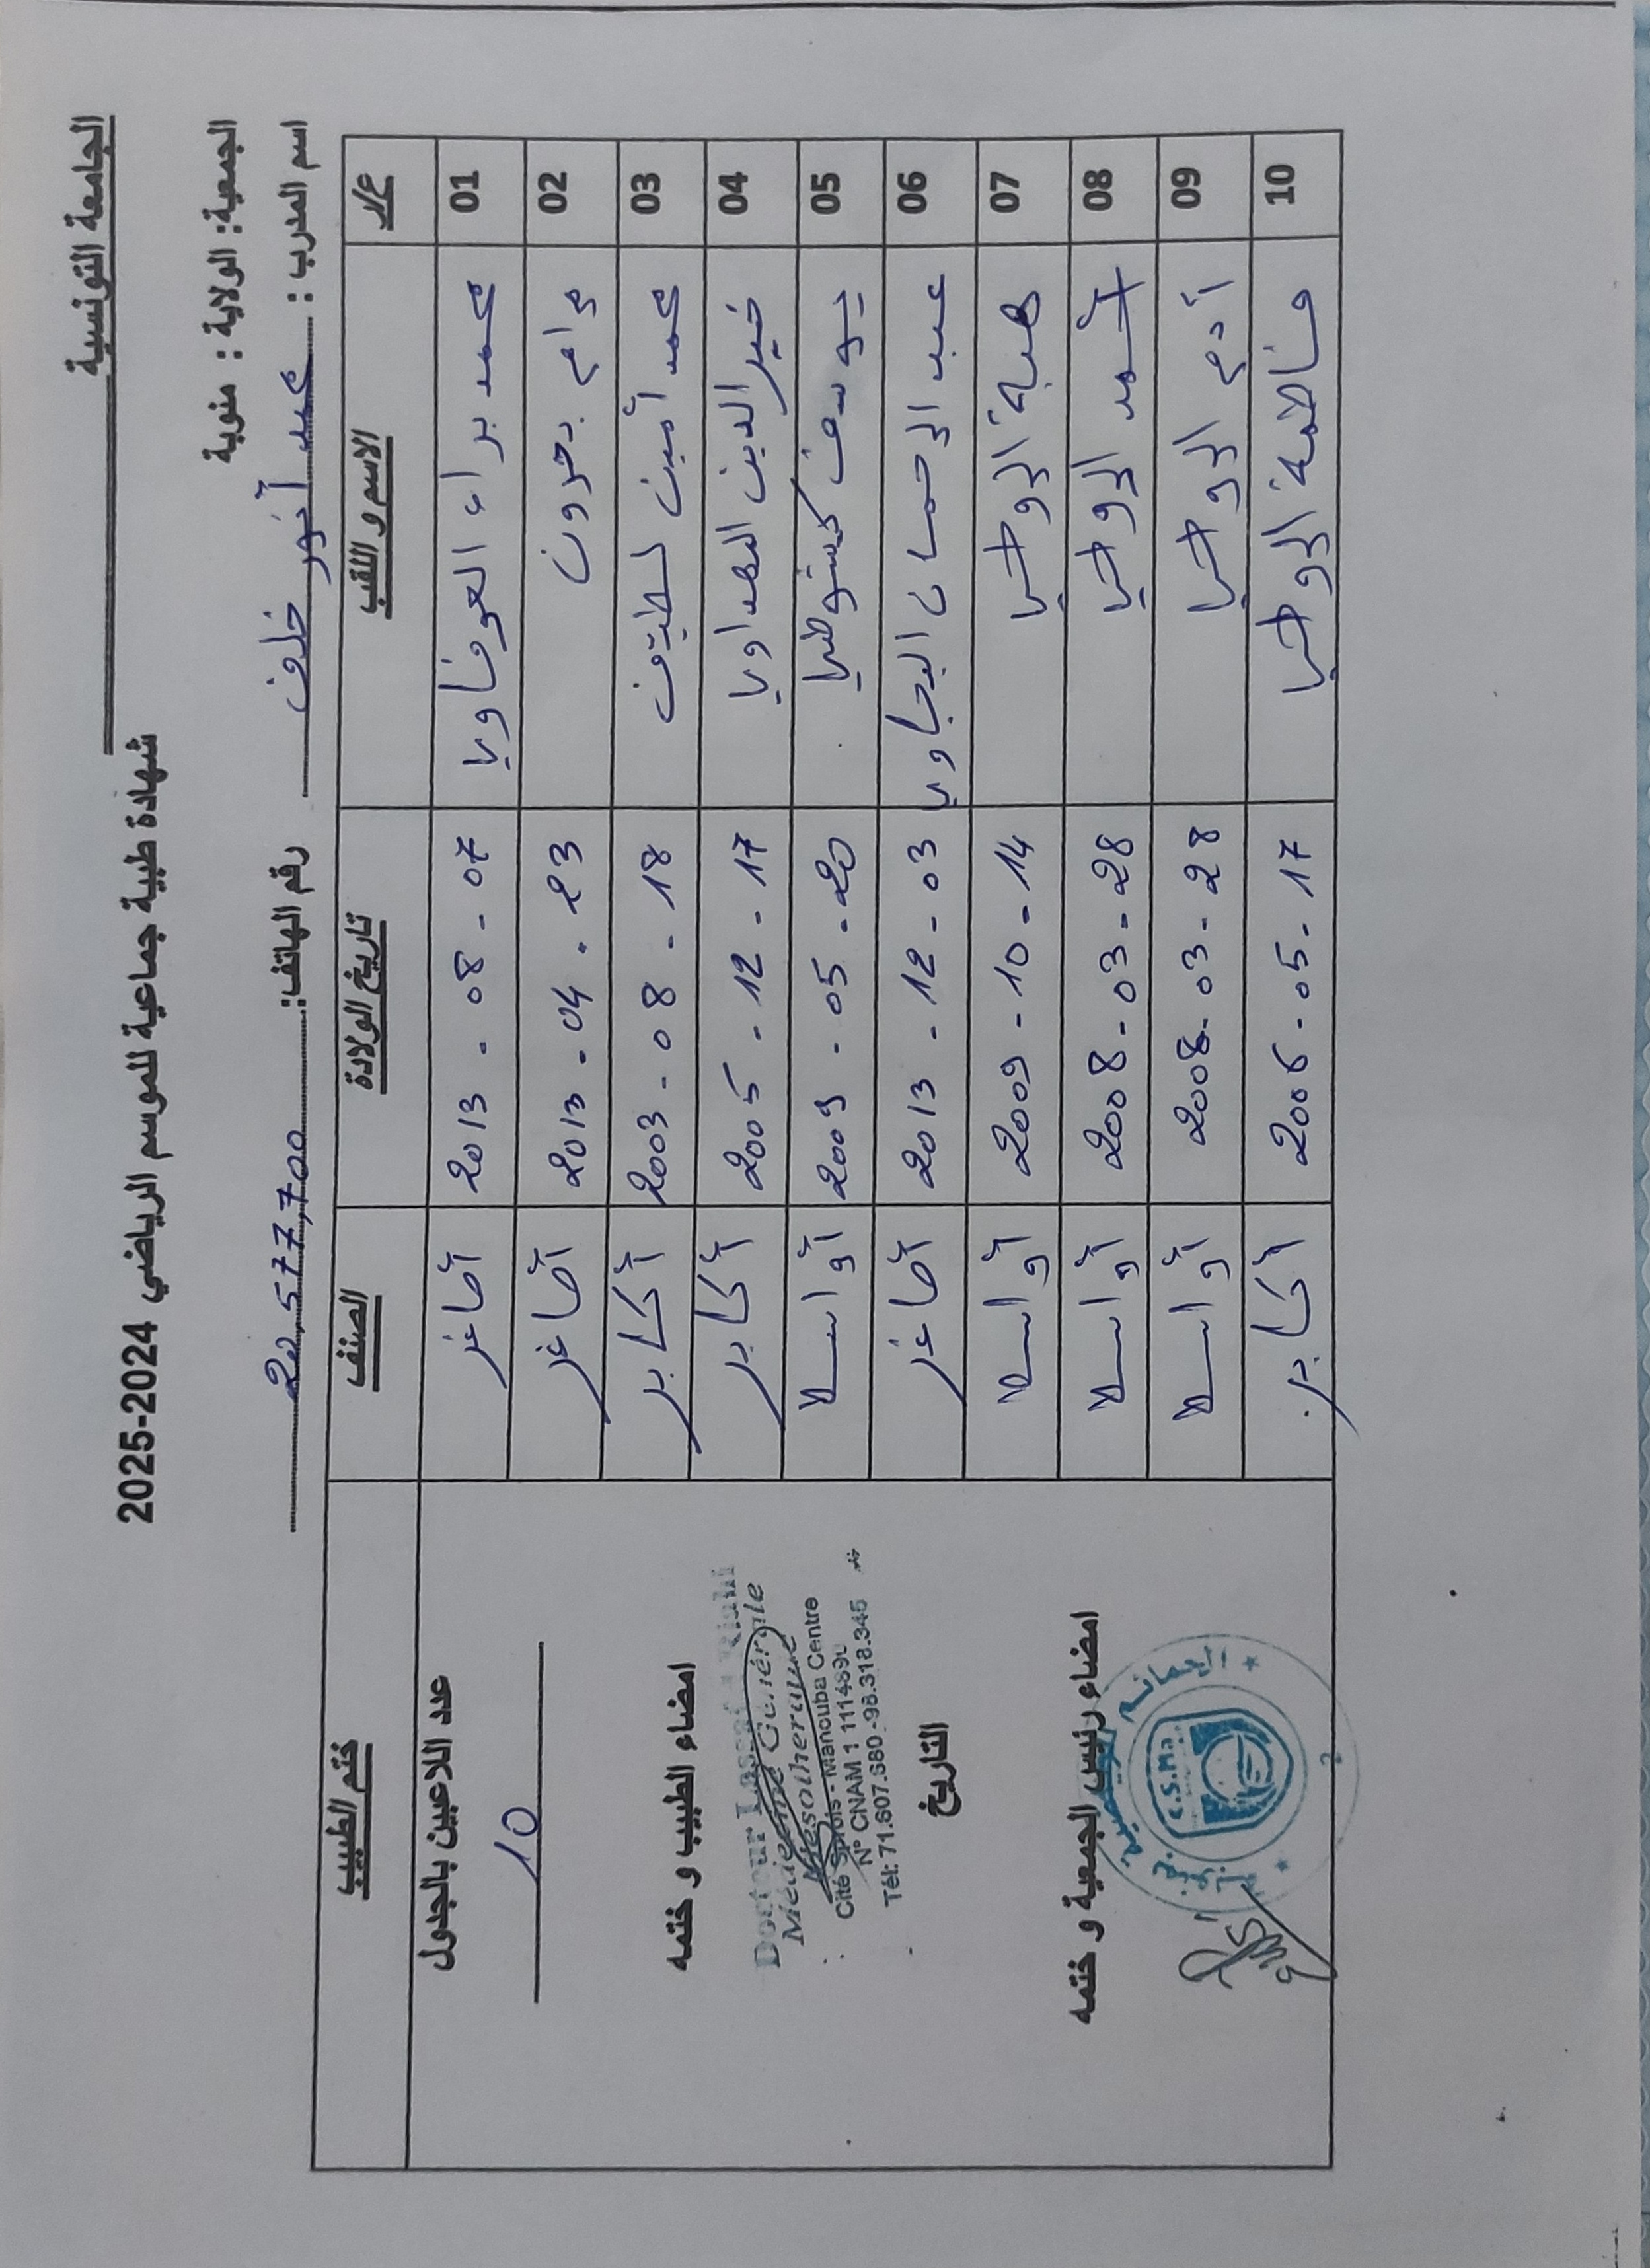 الجامعة التونسية
شهادة طبية جماعية للموسم الرياضي 2024-2025
الجمعية: الولاية : منوبة
اسم المدرب : محمد أنور خلف رقم الهاتف: 20.577.700
ع/د الاسم و اللقب تاريخ الولادة الصنف ختم الطبيب
01 محمد براء العوفاوي 2013 - 08 - 07 أصاغر
02 مرام بحرون 2013 - 04 - 23 أصاغر
03 محمد أمين لطيف 2003 - 08 - 18 أكابر
04 خير الدين المهداوي 2005 - 12 - 17 أكابر
05 يوسف 2009 - 05 - 20 أواسط
06 عبد الرحمان البجاوي 2013 - 12 - 03 أصاغر
07 هبة الروحي 2009 - 10 - 14 أواسط
08 أحمد الروحي 2008 - 03 - 28 أواسط
09 آدم الروحي 2008 - 03 - 28 أواسط
10 فاطمة الروحي 2006 - 05 - 17 أكابر
عدد اللاعبين بالجدول
10
امضاء الطبيب و ختمه
Docteur Lassad Riahi
Médecine Générale
Mésothérapie
Cité Sprols - Manouba Centre
N° CNAM 1 1114890
Tél: 71.607.680 - 98.318.345
التاريخ
امضاء رئيس الجمعية و ختمه
C.S.Ma